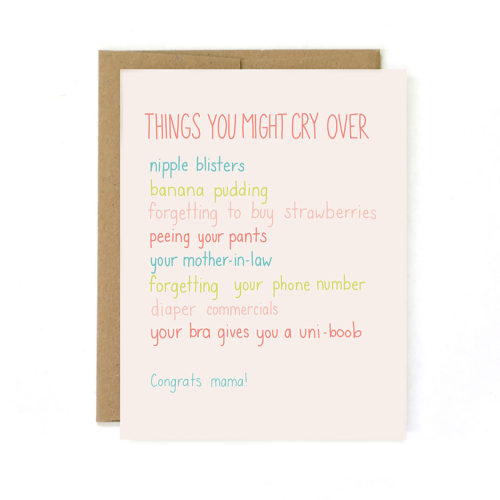 THINGS YOU MIGHT CRY OVER
nipple blisters
banana pudding
forgetting to buy strawberries
peeing your pants
your mother-in-law
forgetting your phone number
diaper commercials
your bra gives you a uni-boob
Congrats mama!